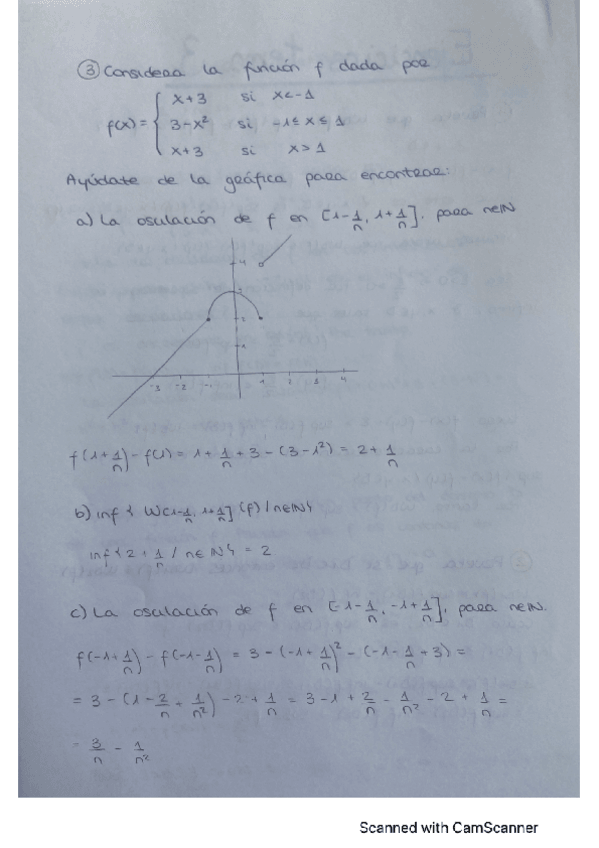 ③ Considera la función f dada por
f(x) = { x+3 si x<-1
3-x² si -1≤x≤1
x+3 si x>1
Ayúdate de la gráfica para encontrar:
a) La osculación de f en [1-1/n, 1+1/n], para n∈ℕ
4
2
1
-3 -2 -1 1 2 3 4
f(1+1/n) - f(1) = 1+1/n+3-(3-1²) = 2+1/n
b) inf { W[1-1/n, 1+1/n] (f) / n∈ℕ}
inf { 2+1/n / n∈ℕ} = 2
c) La osculación de f en [-1-1/n, -1+1/n], para n∈ℕ.
f(-1+1/n) - f(-1-1/n) = 3-(-1+1/n)² - (-1-1/n+3) =
= 3-(1-2/n+1/n²)-2+1/n = 3-1+2/n-1/n²-2+1/n =
= 3/n - 1/n²
Scanned with CamScanner